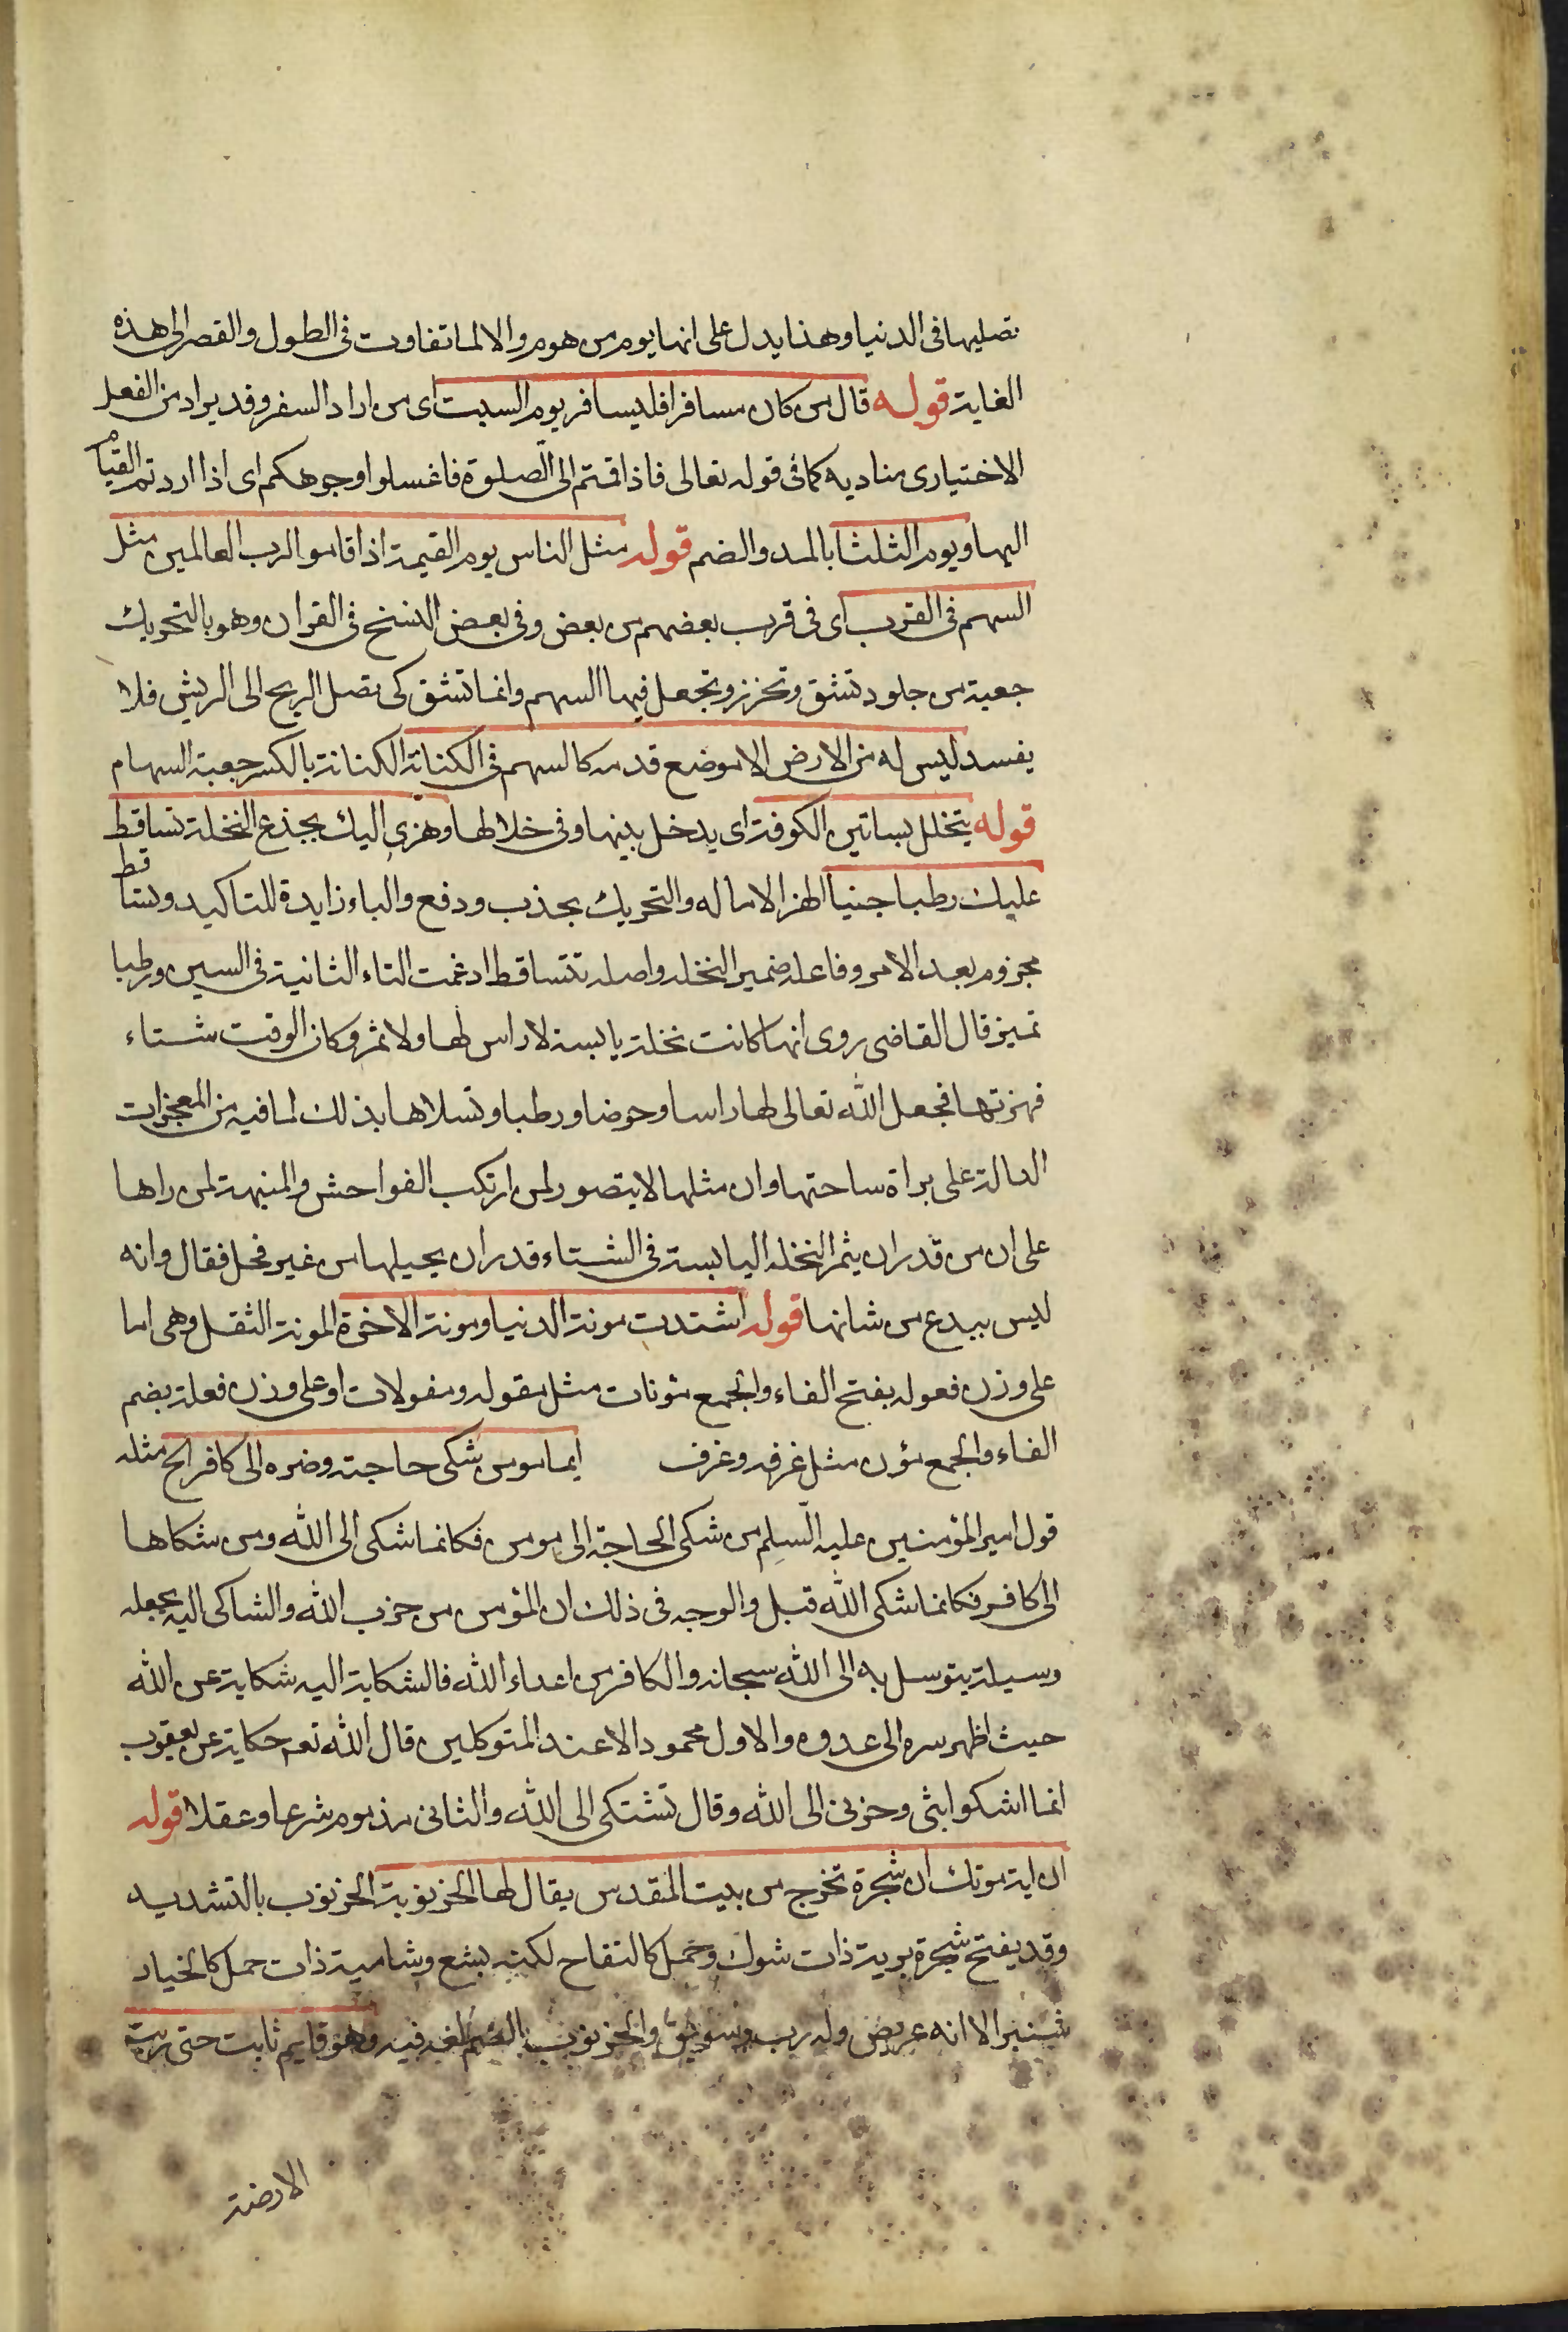 تصليها فى الدنيا وهذا يدل على انها يوم من هوم والا لما تفاوت فى الطول والقصر الى هذه
الغاية قوله قال من كان مسافرا فليسافر يوم السبت اى من اراد السفر وقد يراد من الفعل
الاختيارى مناديه كما فى قوله تعالى فاذا قمتم الى الصلوة فاغسلوا وجوهكم اى اذا اردتم القيام
اليها ويوم الثلثا بالمد والضم قوله مثل الناس يوم القيمة اذا قاموا لرب العالمين مثل
السهم فى القرب اى فى قرب بعضهم من بعض وفى بعض النسخ فى القران وهو بالتحريك
جعبة من جلود تشق وتخرز وتجعل فيها السهم وانما تشق كى تصل الريح الى الريش فلا
يفسد ليس له من الارض الا موضع قدمه كالسهم فى الكنانة الكنانة بالكسر جعبة السهام
قوله يتخلل بساتين الكوفة اى يدخل بينها وفى خلالها وهزى اليك بجذع النخلة تساقط
عليك رطبا جنيا الهز الاماله والتحريك بجذب ودفع والباء زايدة للتاكيد وتساقط
مجزوم بعد الامر وفاعله ضمير النخله واصله تتساقط ادغمت التاء الثانية فى السين ورطبا
تميز قال القاضى روى انها كانت نخلة يابسة لا راس لها ولا ثمر وكان الوقت شتاء
فهزتها فجعل الله تعالى لها راسا وخوصا ورطبا وتسلاها بذلك لما فيه من المعجزات
الدالة على براة ساحتها وان مثلها لا يتصور لمن ارتكب الفواحش والمنبهة لمن راها
على ان من قدر ان يثمر النخله اليابسة فى الشتاء قدر ان يحبلها من غير فحل فقال وانه
ليس ببدع من شانها قوله اشتدت مونة الدنيا ومونة الاخرة المونة الثقل وهى اما
على وزن فعوله بفتح الفاء والجمع مئونات مثل مقوله ومقولات او على وزن فعلة بضم
الفاء والجمع مؤن مثل غرفه وغرف ايما مومن شكى حاجته وضره الى كافر الخ مثله
قول امير المؤمنين عليه السلم من شكى الحاجة الى مومن فكانما شكى الى الله ومن شكاها
الى كافر فكانما شكى الله قبل والوجه فى ذلك ان المؤمن من حزب الله والشاكى اليه يجعله
وسيلة يتوسل به الى الله سبحانه والكافر من اعداء الله فالشكاية اليه شكاية عن الله
حيث اظهر سره الى عدوه والاول محمود الا عند المتوكلين قال الله تعم حكاية عن يعقوب
انما اشكوا بثى وحزنى الى الله وقال تشتكى الى الله والثانى مذموم شرعا وعقلا قوله
ان اية موتك ان شجرة تخرج من بيت المقدس يقال لها الخرنوبة الخرنوب بالتشديد
وقد يفتح شجرة برية ذات شوك وحمل كالتفاح لكنه بشع وشامية ذات حمل كالخيار
شنبر الا انه عريض وله رب وسويق والخرنوب بالضم لغه فيه وهو قايم ثابت حتى دبت
الارضة